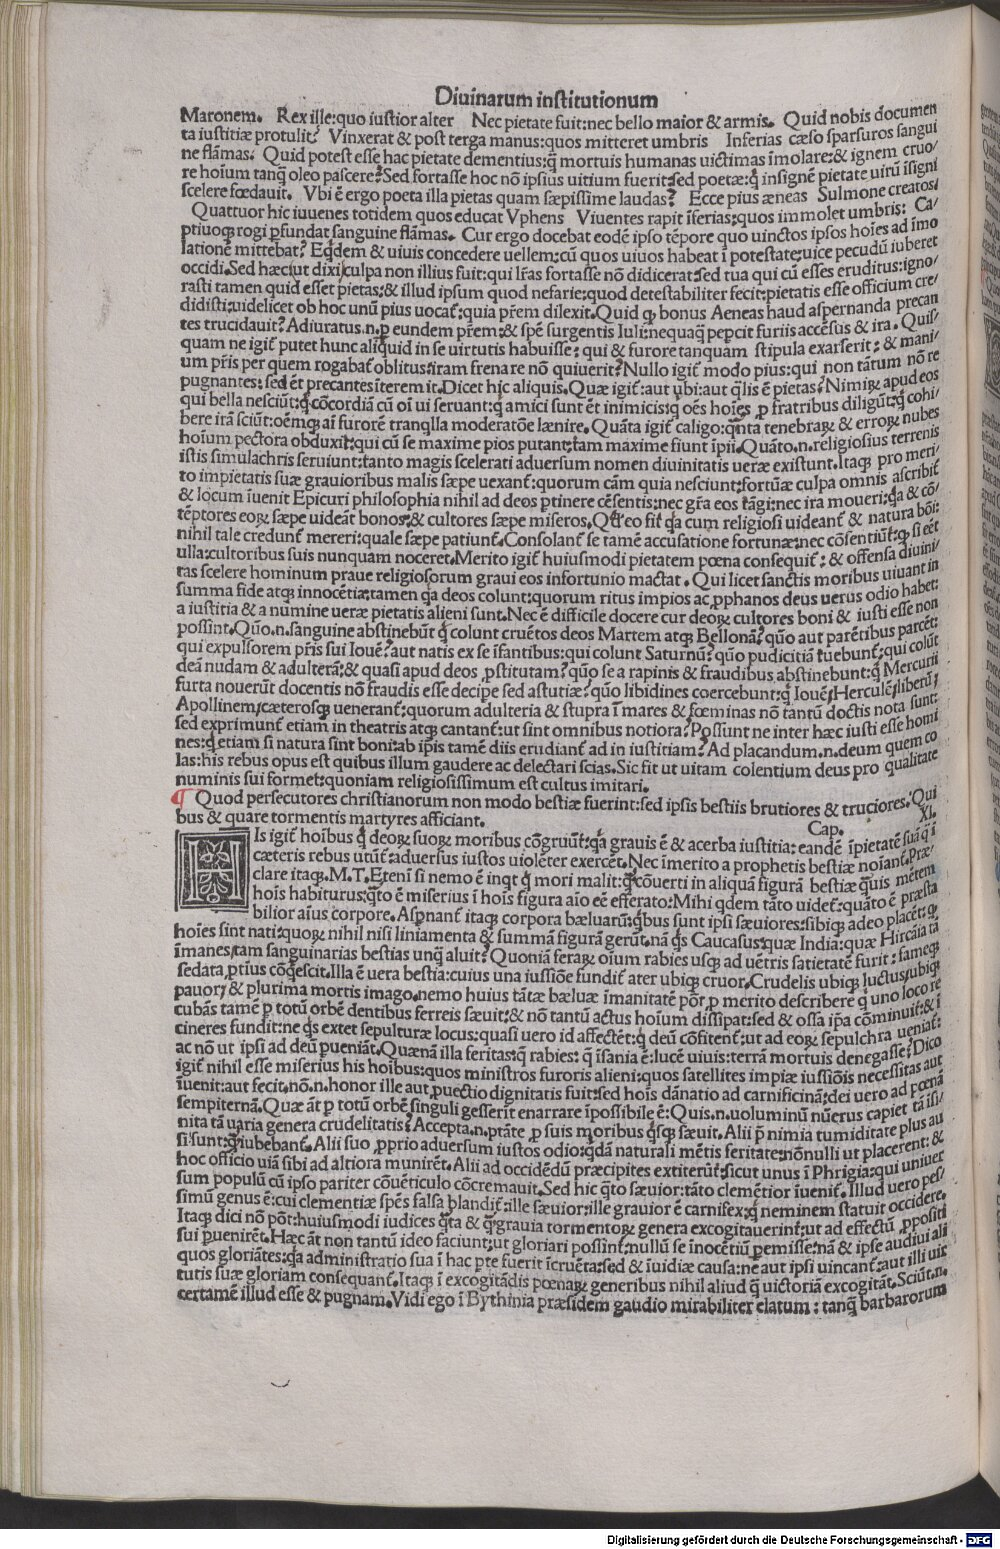 Diuinarum institutionum
Maronem. Rex ille:quo iustior alter Nec pietate fuit:nec bello maior & armis. Quid nobis documen
ta iustitiæ protulit? Vinxerat & post terga manus:quos mitteret umbris Inferias cæso sparsuros sangui
ne flāmas. Quid potest esse hac pietate dementius:q̄ mortuis humanas uictimas īmolare:& ignem cruo/
re hoium tanq̄ oleo pascere?Sed fortasse hoc nō ipsius uitium fuerit:sed poetæ:q̄ insignē pietate uirū īsigni
scelere fœdauit. Vbi ē ergo poeta illa pietas quam sæpissime laudas? Ecce pius æneas Sulmone creatos/
Quattuor hic iuuenes totidem quos educat Vphens Viuentes rapit īferias:quos immolet umbris: Ca/
ptiuoq; rogi ꝑfundat sanguine flāmas. Cur ergo docebat eodē ipso tēpore quo uinctos ipsos hoies ad īmo
lationē mittebat? Eqdem & uiuis concedere uellem:cū quos uiuos habeat ī potestate:uice pecudū iuberet
occidi.Sed hæc(ut dixi)culpa non illius fuit:qui lr̄as fortasse nō didicerat:sed tua qui cū esses eruditus:igno/
rasti tamen quid esset pietas:& illud ipsum quod nefarie:quod detestabiliter fecit:pietatis esse officium cre/
didisti:uidelicet ob hoc unū pius uocat̄:quia pr̄em dilexit.Quid q; bonus Aeneas haud aspernanda precan
tes trucidauit?Adiuratus.n.ꝑ eundem pr̄em:& spē surgentis Iuli:nequaq̄ peꝑcit furiis accēsus & ira. Quis/
quam ne igit̄ putet hunc aliquid in se uirtutis habuisse: qui & furore tanquam stipula exarserit: & mani/
um pr̄is per quem rogabat̄ oblitus:iram frenare nō quiuerit?Nullo igit̄ modo pius:qui non tātum nō re
pugnantes:sed ēt precantes īterem it.Dicet hic aliquis.Quæ igit̄:aut ubi:aut q̄lis ē pietas?Nimiꝝ apud eos
qui bella nesciūt:q̄ cōcordiā cū oī ui seruant:q̄ amici sunt ēt inimicis:q̄ oēs hoies ꝓ fratribus diligūt:q̄ cohi/
bere irā sciūt:oēmq; ai furorē tranqlla moderatōe lænire. Quāta igit̄ caligo:q̄nta tenebraꝝ & erroꝝ nubes
hoium pectora obduxit:qui cū se maxime pios putant:tam maxime fiunt īpii.Quāto.n.religiosius terrenis
istis simulachris seruiunt:tanto magis scelerati aduersum nomen diuinitatis ueræ existunt.Itaq; pro meri/
to impietatis suæ grauioribus malis sæpe uexant̄:quorum cām quia nesciunt:fortūæ culpa omnis ascribit̄
& locum īuenit Epicuri philosophia nihil ad deos ꝑtinere cēsentis:nec gr̄a eos tāgi:nec ira moueri:qa & cō/
tēptores eoꝝ sæpe uideāt bonos:& cultores sæpe miseros.Qd̄ eo fit qa cum religiosi uideant̄ & natura bōi:
nihil tale credunt̄ mereri:quale sæpe patiunt̄.Consolant̄ se tamē accusatione fortunæ:nec cōsentiūt:q; si eēt
ulla:cultoribus suis nunquam noceret.Merito igit̄ huiusmodi pietatem pœna consequit̄: & offensa diuini/
tas scelere hominum praue religiosorum graui eos infortunio mactat. Qui licet sanctis moribus uiuant in
summa fide atq; innocētia:tamen qa deos colunt:quorum ritus impios ac ꝓphanos deus uerus odio habet:
a iustitia & a numine ueræ pietatis alieni sunt.Nec ē difficile docere cur deoꝝ cultores boni & iusti esse non
possint.Qūo.n.sanguine abstinebūt q̄ colunt cruētos deos Martem atq; Bellonā?qūo aut parētibus parcēt:
qui expulsorem pr̄is sui Iouē?aut natis ex se īfantibus:qui colunt Saturnū?qūo pudicitiā tuebunt̄:qui colūt
deā nudam & adulterā:& quasi apud deos ꝓstitutam?qūo se a rapinis & fraudibus abstinebunt:q̄ Mercurii
furta nouerūt docentis nō fraudis esse decipe sed astutiæ?qūo libidines coercebunt:q̄ Iouē/Herculē/liberū/
Apollinem/cæterosq; uenerant̄:quorum adulteria & stupra ī mares & fœminas nō tantū doctis nota sunt:
sed exprimunt̄ etiam in theatris atq; cantant̄:ut sint omnibus notiora?Possunt ne inter hæc iusti esse homi
nes:q̄ etiam si natura sint boni:ab ipīs tamē diis erudiant̄ ad in iustitiam?Ad placandum.n.deum quem co
las:his rebus opus est quibus illum gaudere ac delectari scias.Sic fit ut uitam colentium deus pro qualitate
numinis sui formet:quoniam religiosissimum est cultus imitari.
¶ Quod persecutores christianorum non modo bestiæ fuerint:sed ipsis bestiis brutiores & truciores. Qui
bus & quare tormentis martyres afficiant. Cap. XI.
HIs igit̄ hoībus q̄ deoꝝ suoꝝ moribus cōgruūt:q̄ grauis ē & acerba iustitia:eandē īpietatē suā q̄ ī
cæteris rebus utūt̄:aduersus iustos uiolēter exercēt.Nec īmerito a prophetis bestiæ noīant̄.Præ/
clare itaq; .M.T.Etenī si nemo ē inqt q̄ mori malit:q̄ cōuerti in aliquā figurā bestiæ quis mētem
hois habiturus:q̄to ē miserius ī hois figura aīo eē efferato:Mihi qdem tāto uidet̄:quāto ē præsta
bilior aīus corpore.Aspnant̄ itaq; corpora bæluarū:qbus sunt ipsi sæuiores:sibiq; adeo placēt:q;
hoies sint nati:quoꝝ nihil nisi liniamenta & summā figurā gerūt.nā q̄s Caucasus:quæ India:quæ Hircāia tā
īmanes/tam sanguinarias bestias unq̄ aluit?Quoniā feraꝝ oīum rabies usq; ad uētris satietatē furit: fameq;
sedata ꝓtius cōqescit.Illa ē uera bestia:cuius una iussiōe fundit̄ ater ubiq; cruor.Crudelis ubiq; luctus/ubiq;
pauor/& plurima mortis imago.nemo huius tātæ bæluæ īmanitatē pōt̄ ꝓ merito describere q̄ uno loco re
cubās tamē ꝑ totū orbē dentibus ferreis sæuit:& nō tantū actus hoīum dissipat:sed & ossa īpa cōminuit:& ī
cineres fundit:ne q̄s extet sepulturæ locus:quasi uero id affectēt:q̄ deū cōfitent̄:ut ad eoꝝ sepulchra ueniat̄:
ac nō ut ipsi ad deū pueniāt.Quænā illa feritas:q̄ rabies: q̄ īsania ē:lucē uiuis:terrā mortuis denegasse?Dico
īgit̄ nihil esse miserius his hoībus:quos ministros furoris alieni:quos satellites impiæ iussiōis necessitas aut
īuenit:aut fecit.nō.n.honor ille aut ꝓuectio dignitatis fuit:sed hois dānatio ad carnificinā:dei uero ad pœnā
sempiternā.Quæ āt ꝑ totū orbē singuli gesserit enarrare īpossibile ē:Quis.n.uoluminū nūerus capiet tā īfi/
nita tā uaria genera crudelitatis?Accepta.n.ptāte ꝓ suis moribus q̄sq; sæuit.Alii p̄ nimia tumiditate plus au
si sunt:q̄ iubebant̄.Alii suo ꝓprio aduersum iustos odio:qdā naturali mētis feritate:nōnulli ut placerent:&
hoc officio uiā sibi ad altiora munirēt.Alii ad occidēdū præcipites extiterūt:sicut unus ī Phrigia:qui uniuer
sum populū cū ipso pariter cōuēticulo cōcremauit.Sed hic q̄to sæuior:tāto clemētior īuenit̄.Illud uero pes/
simū genus ē:cui clementiæ spēs falsa blandit̄:ille sæuior:ille grauior ē carnifex:q̄ neminem statuit occidere.
Itaq; dici nō pōt:huiusmodi iudices q̄ta & q̄ grauia tormentoꝝ genera excogitauerint:ut ad effectū ꝓpositi
sui ꝑuenirēt.Hæc āt non tantū ideo faciunt:ut gloriari possint:nullū se inocētiū ꝑemisse:nā & ipse audiui ali
quos gloriātes:qa administratio sua ī hac pte fuerit īcruēta:sed & īuidiæ causa:ne aut ipsi uincant̄:aut illi uir
tutis suæ gloriam consequant̄.Itaq; ī excogitādis pœnaꝝ generibus nihil aliud q̄ uictoriā excogitāt.Sciūt.n.
certamē illud esse & pugnam.Vidi ego ī Bythinia præsidem gaudio mirabiliter elatum: tanq̄ barbarorum
Digitalisierung gefördert durch die Deutsche Forschungsgemeinschaft - DFG